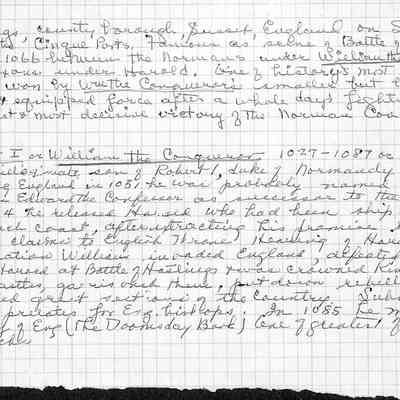 gs, county borough, Sussex, England on S
the Cinque Ports. Famous as scene of Battle of
1066 between the Normans under William the
xons under Harold. One of history's most
won by Wm the Conqueror's smaller but
equipped force after a whole day's fighting
most decisive victory of the Norman Con
I or William the Conqueror 1027-1087 or
illegitimate son of Robert I, duke of Normandy
England in 1051 he was probably named
Edward the Confessor as successor to the
4 he released Harold who had been ship
coast, after extracting his promise
claim to English Throne. Hearing of Har
ation William invaded England, defeated
Harold at Battle of Hastings & was crowned Kin
castles, garrisoned them, put down rebell
great sections of the country. Subs
prelates for Eng. bishops. In 1085 he m
of Eng (The Doomsday Book) One of greatest of